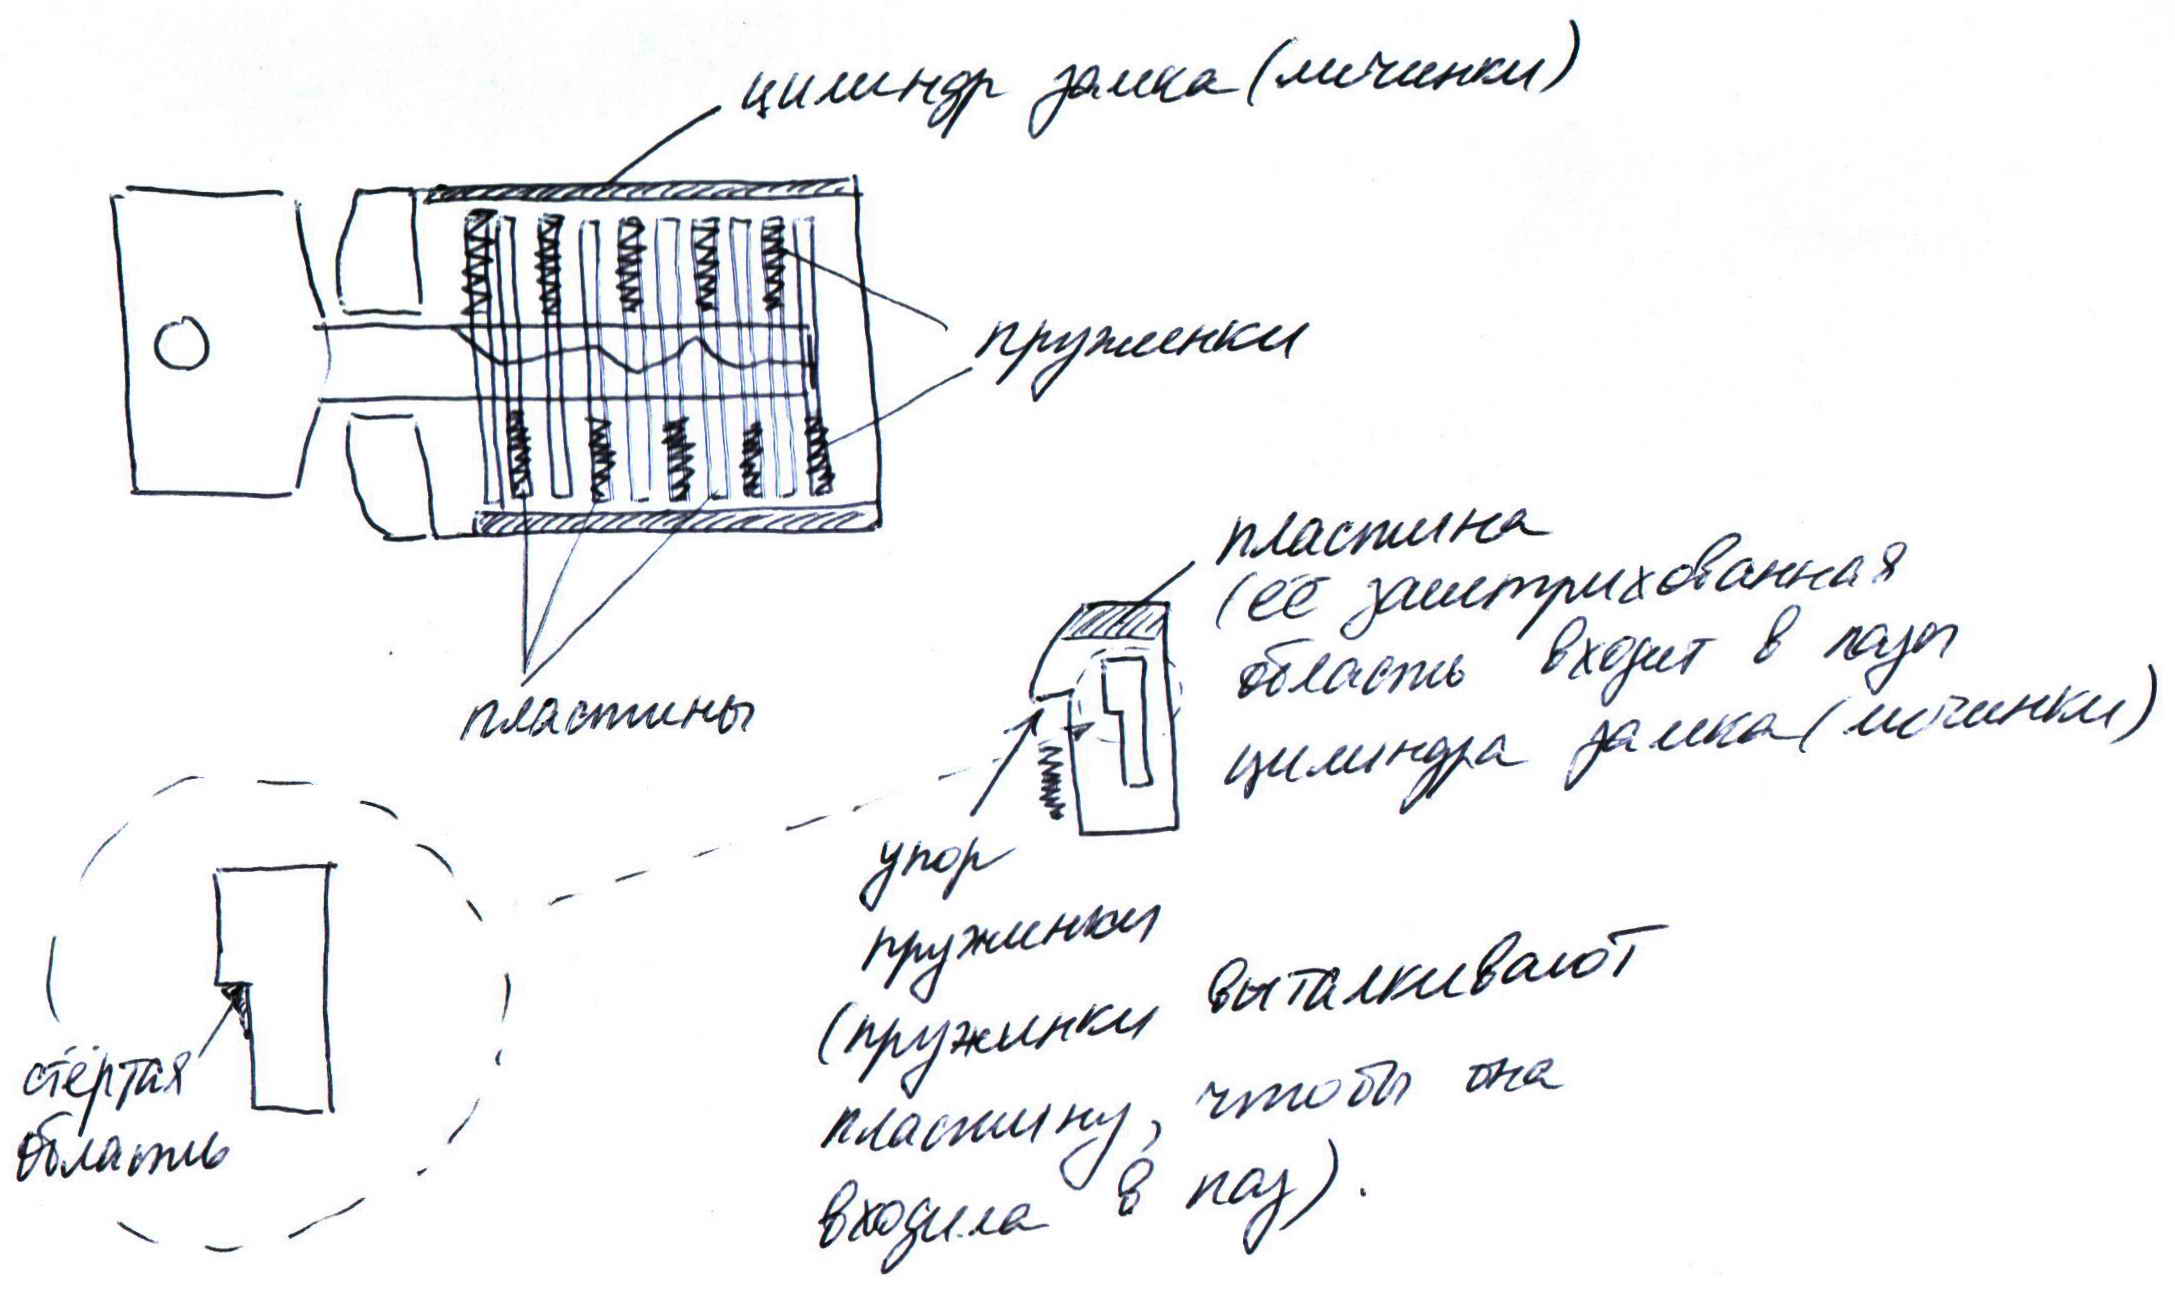 цилиндр замка (личинки)
пружинки
пластины
пластина
(её заштрихованная
область входит в пазы
цилиндра замка (личинки)
упор
пружинки
(пружинки выталкивают
пластину, чтобы она
входила в паз).
стёртая
область